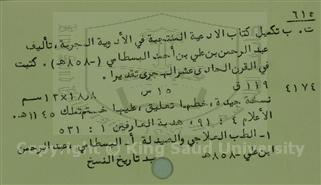 ٦١٥
ت . ب تكميل كتاب الادعية المنتجبة في الأدوية المجربة، تأليف
عبد الرحمن بن علي بن أحمد البسطامي (-٨٥٨هـ). كتبت
في القرن الحادي عشر الهجري تقديرا.
١١٩ ق ١٥ س ١٨٫٨×١٣ سم
٤١٧٤
نسخة جيدة، خطها تعليق، عليها ختم تملك ١١٤٥هـ.
الأعلام ٤ : ٩١، هدية العارفين ١ : ٥٣١
١- الطب العلاجي والصيدلة أ- البسطامي، عبد الرحمن
ابن علي -٨٥٨هـ ب- تاريخ النسخ
Copyright © King Saud University